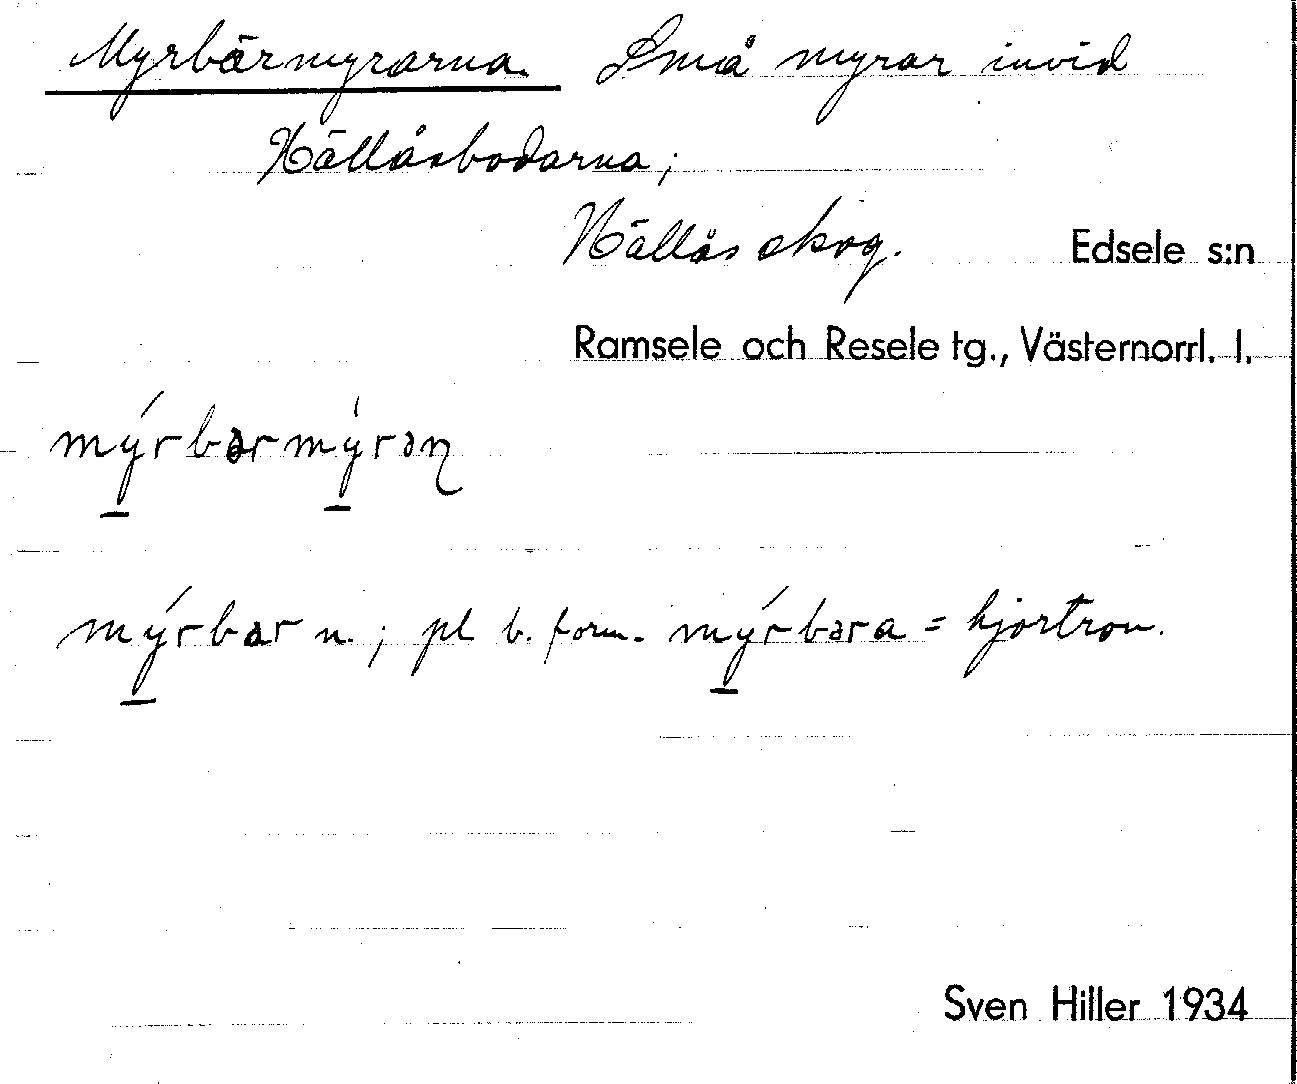 Myrbärmyrarna. Små myrar invid
Hällåsbodarna;
Hällås skog. Edsele s:n
Ramsele och Resele tg., Västernorrl. l.
mýrbərmỳrəɳ
mýrbər n.; pl b. form. mýrbəra = hjortron.
Sven Hiller 1934